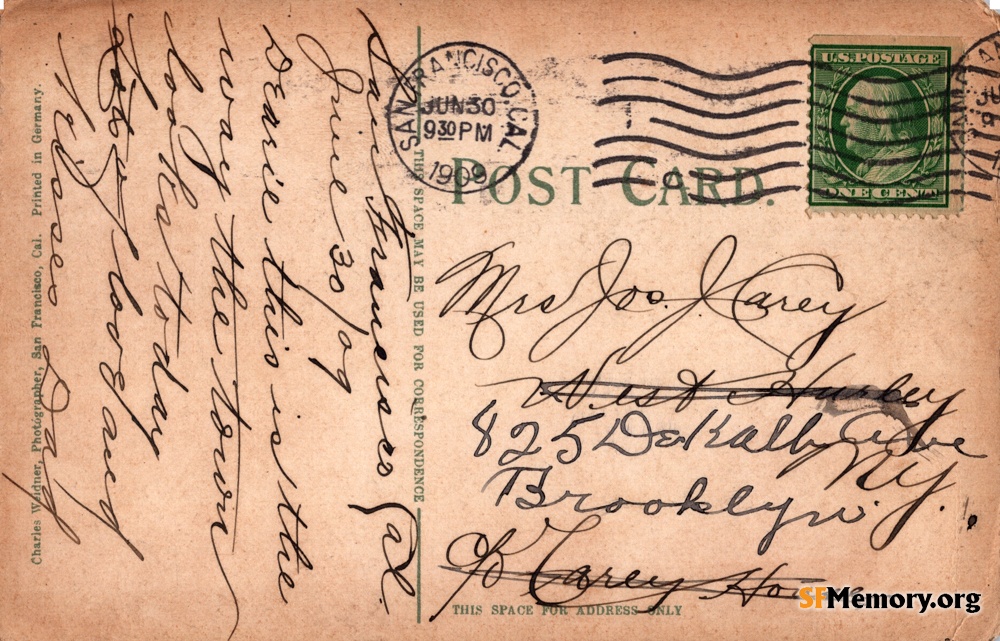 San Francisco Cal.
June 30/09
Dearie this is the
way the town
looks today
Lots of love and
Kisses Dad
Charles Weidner, Photographer, San Francisco, Cal. Printed in Germany.
THIS SPACE MAY BE USED FOR CORRESPONDENCE
SAN FRANCISCO, CAL.
JUN 30
9 30 PM
1909
1
U.S. POSTAGE
ONE CENT
POST CARD.
Mrs Jos. J. Carey
West Hurley
825 DeKalb Ave
N.Y.
Brooklyn.
c/o Carey House
THIS SPACE FOR ADDRESS ONLY
SFMemory.org